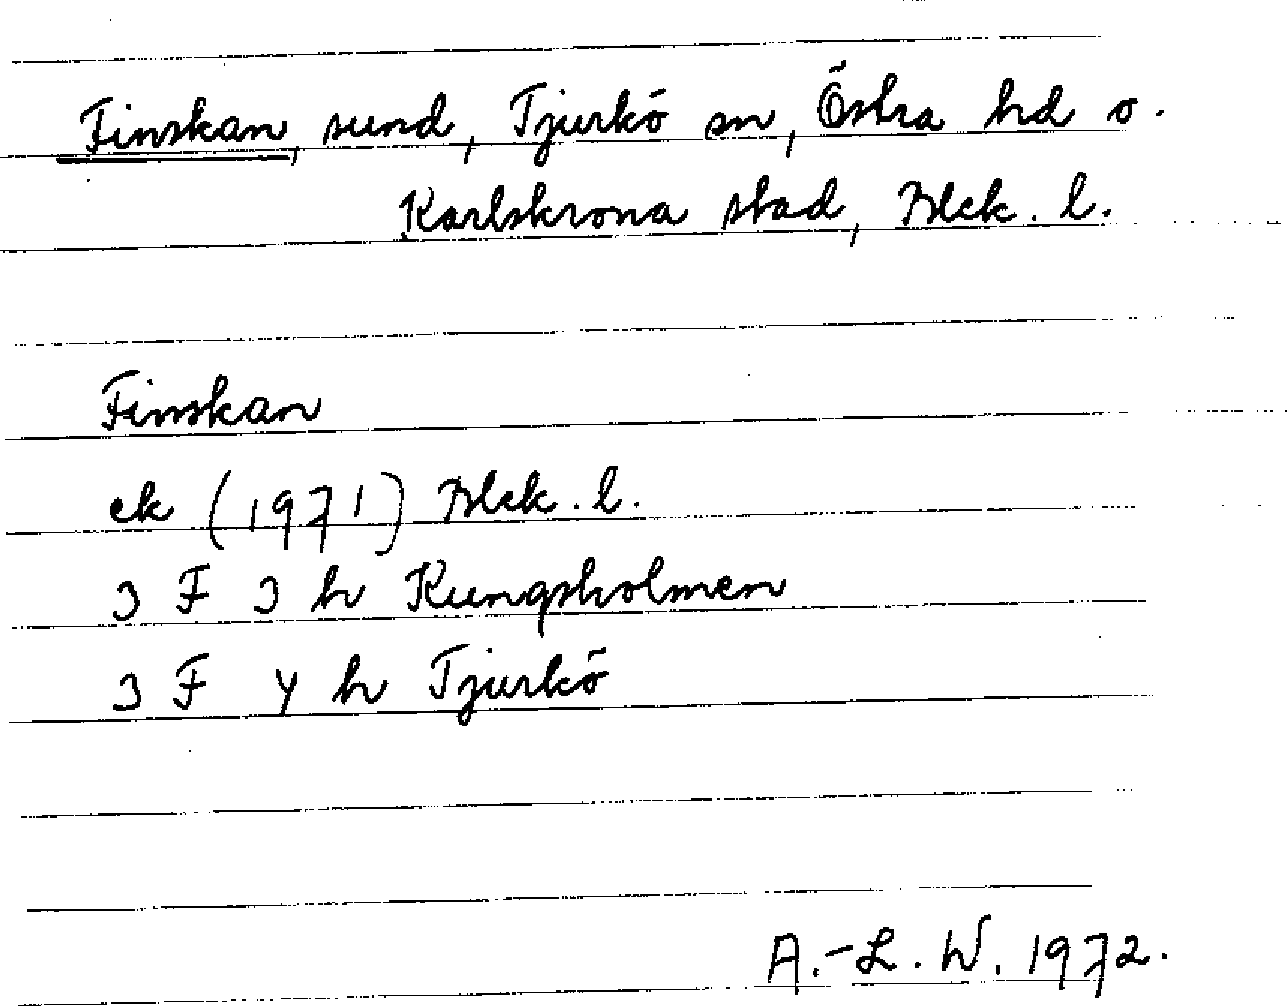 Finskan, sund, Tjurkö sn, Östra hd o.
Karlskrona stad, Blek. l.
Finskan
ek (1971) Blek. l.
3 F 3 h Kungsholmen
3 F 4 h Tjurkö
A.-L. W. 1972.